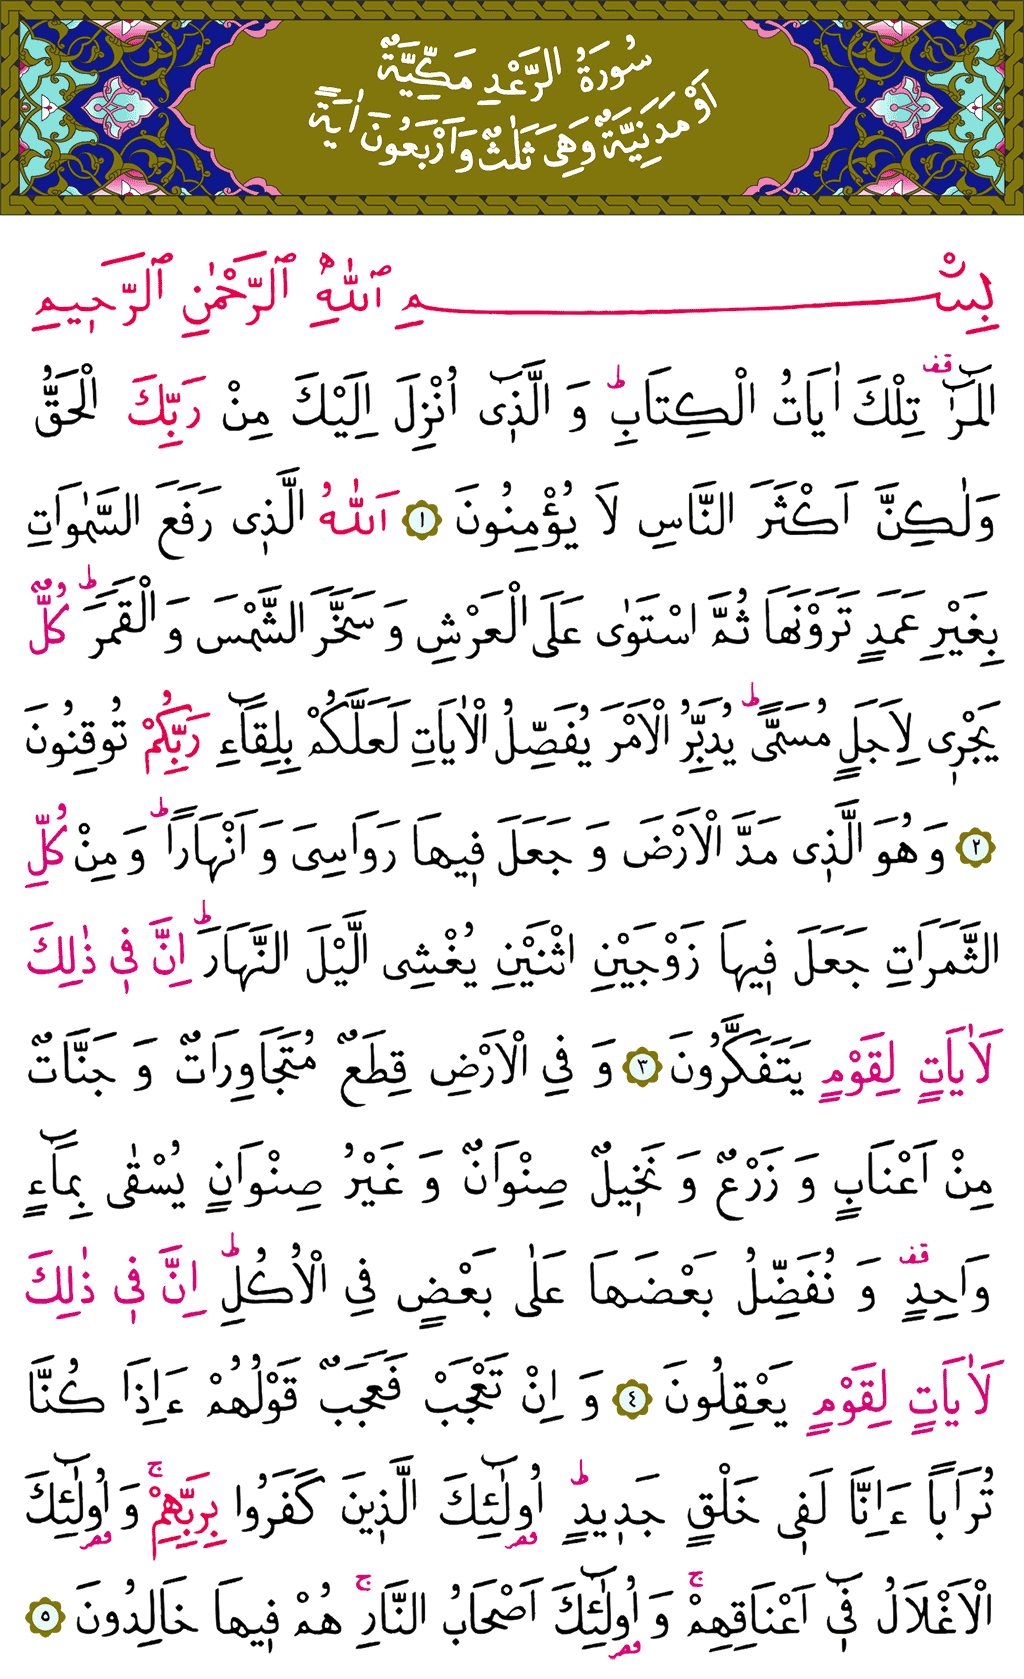 سُورَةُ الرَّعْدِ مَكِّيَّةٌ
اَوْ مَدَنِيَّةٌ وَهِىَ ثَلٰثٌ وَاَرْبَعُونَ اٰيَةً
بِسْمِ ٱللّٰهِ ٱلرَّحْمٰنِ ٱلرَّح۪يمِ
الٓمٓرٰ۠ قف تِلْكَ اٰيَاتُ الْكِتَابِۜ ط وَ الَّذ۪ٓى اُنْزِلَ اِلَيْكَ مِنْ رَبِّكَ الْحَقُّ
وَلٰكِنَّ اَكْثَرَ النَّاسِ لَا يُؤْمِنُونَ ١ اَللّٰهُ الَّذ۪ى رَفَعَ السَّمٰوَاتِ
بِغَيْرِ عَمَدٍ تَرَوْنَهَا ثُمَّ اسْتَوٰى عَلَى الْعَرْشِ وَ سَخَّرَ الشَّمْسَ وَ الْقَمَرَ ط كُلٌّ
يَجْر۪ى لِاَجَلٍ مُسَمًّى ط يُدَبِّرُ الْاَمْرَ يُفَصِّلُ الْاٰيَاتِ لَعَلَّكُمْ بِلِقَٓاءِ رَبِّكُمْ تُوقِنُونَ
٢ وَ هُوَ الَّذ۪ى مَدَّ الْاَرْضَ وَ جَعَلَ ف۪يهَا رَوَاسِىَ وَ اَنْهَارًا ط وَ مِنْ كُلِّ
الثَّمَرَاتِ جَعَلَ ف۪يهَا زَوْجَيْنِ اثْنَيْنِ يُغْشِى الَّيْلَ النَّهَارَ ط اِنَّ ف۪ى ذٰلِكَ
لَاٰيَاتٍ لِقَوْمٍ يَتَفَكَّرُونَ ٣ وَ فِى الْاَرْضِ قِطَعٌ مُتَجَاوِرَاتٌ وَ جَنَّاتٌ
مِنْ اَعْنَابٍ وَ زَرْعٌ وَ نَخ۪يلٌ صِنْوَانٌ وَ غَيْرُ صِنْوَانٍ يُسْقٰى بِمَٓاءٍ
وَاحِدٍ قف وَ نُفَضِّلُ بَعْضَهَا عَلٰى بَعْضٍ فِى الْاُكُلِ ط اِنَّ ف۪ى ذٰلِكَ
لَاٰيَاتٍ لِقَوْمٍ يَعْقِلُونَ ٤ وَ اِنْ تَعْجَبْ فَعَجَبٌ قَوْلُهُمْ ءَاِذَا كُنَّا
تُرَابًا ءَاِنَّا لَف۪ى خَلْقٍ جَد۪يدٍ ط اُو۬لٰٓئِكَ قصر الَّذ۪ينَ كَفَرُوا بِرَبِّهِمْ ج وَ اُو۬لٰٓئِكَ قصر
الْاَغْلَالُ ف۪ٓى اَعْنَاقِهِمْ ج وَ اُو۬لٰٓئِكَ قصر اَصْحَابُ النَّارِ ج هُمْ ف۪يهَا خَالِدُونَ ٥